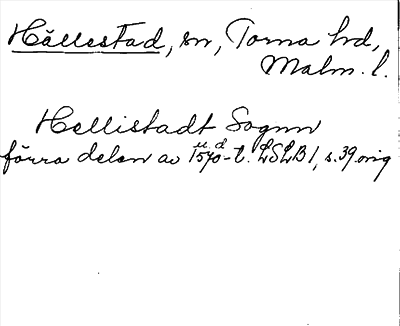 Hällestad, sn, Torna hd,
Malm. l.
Hellistadt Sognn
förra delen av 1570-t. LSLB1, s. 39 orig